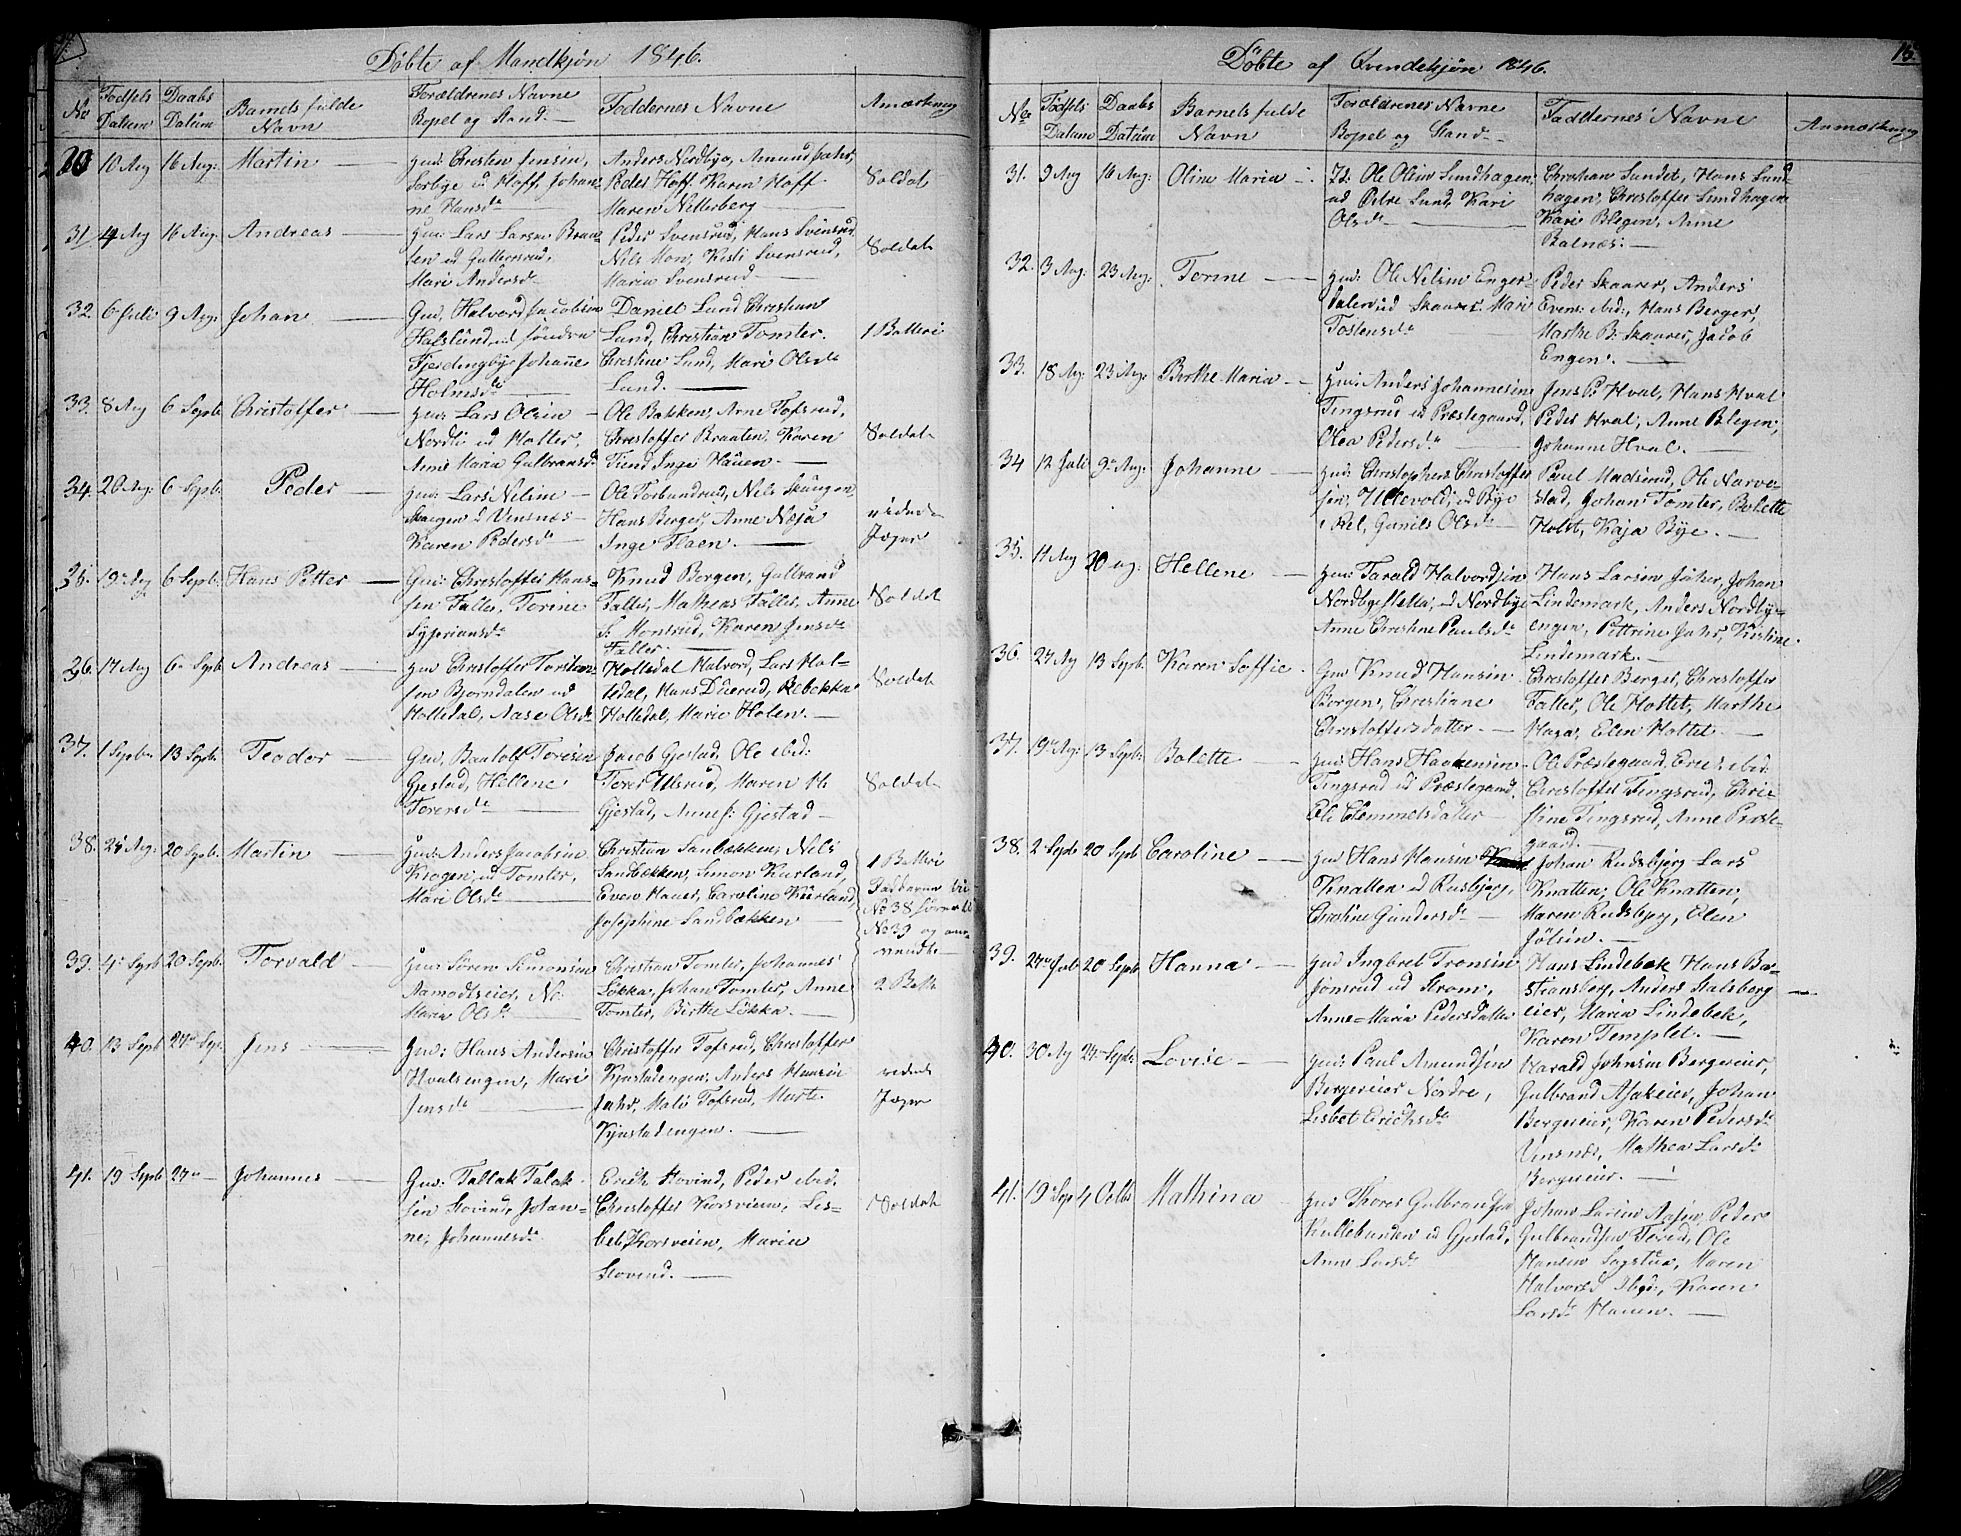 Döbte af Mandkjön 1846.
No Fødsels Datum Daabs Datum Barnets fulde Navn Forældrenes Navne Bopel og Stand Faddernes Navne Anmærkning
30 10 Aug 16 Aug: Martin
Christen Jensen,
ud Hoff, Johan-
ne Hansd.
Anders Nordbye, Amund Jahr,
Peder Hoff, Karen Hoff
Maren Nitterberg
Soldat
31 4 Aug 16 Aug. Andreas
Lars Larsen Bra-
ten ud Gulbersrud,
Mari Andersd.
Peder Svensrud, Hans Svensrud
Nils Mon, Kisti Svensrud,
Maria Svensrud
Soldat
32. 6 Juli 9 Aug. Johan
Gud. Halvord Jacobsen
Halslund ud søndre
Fjerdingby, Johanne
Holmsd.
Daniel Lund Christian
Lund, Christian Tomter.
Christine Lund, Mari Olsd.
Lund.
1 Batteri
33. 8 Aug 6 Septb Christoffer
Lars Olsen
Nordli ud Holter,
Anne Maria Gulbransd.
Ole Bakken, Arne Tofsrud,
Christoffer Braaten, Karen
Inge Hauen
Soldat
34. 20 Aug: 6 Septb. Peder
Lars Nilsen
Skaugen ud Vinsnæs
Karen Pedersd.
Ole Torbundrud, Nils Skaugen
Hans Berger, Anne Næsja
Inge Haen.
ridende
Jæger
35. 19 Aug 6 Septb. Hans Petter
Gud: Christoffer Han-
sen Faller, Torine
Syperiansd.
Knud Borgen, Gulbrand
Faller, Matheas Faller, Anne
S: Monsrud, Karen Jensd.
Faller.
Soldat
36. 17 Aug 6 Septb Andreas
Christoffer Torsten-
sen Bjorndalen ud
Holledal, Aase Olsd.
Holledal Halvord, Lars Hol-
ledal, Hans Duerud, Rebekka
Holledal, Marie Holen.
Soldat
37. 1 Septbr. 13 Septb. Teodor
Bantolf Torersen
Gjestad, Hellene
Torersd.
Jacob Gjestad, Ole ibid:
Torer Ulsrud, Maren
Gjestad, Anne J: Gjestad
Soldat
38. 24 Aug: 20 Septb. Martin
Anders Jacobsen
Krogen, ud Tomter,
Mari Olsd.
Christian Sanbækken, Nils
Sandbækken, Simon Kurland,
Even Hauer, Caroline Kurland,
Josephine Sandbækken
1 Batteri
No 38
No 39 og om-
vendt
39. 4 Septb 20 Septb. Torvald
Søren Simonsen
Aamodtseier, No:
Maria Olsd.
Christian Tomter, Johannes
Løkka, Johan Tomter, Anne
Tomter, Birthe Løkka.
2 Batt
40. 13 Septb 27 Septb. Jens
Gud: Hans Andersen
Hvalsengen, Mari
Jensd.
Christoffer Tofsrud, Christoffer
Kjnstadengen, Anders Hansen
Jahr, Malé Tofsrud, Marte
Kjnstadengen.
ridende
Jæger
41. 19 Septb 27 Johannes
Gud: Tallak Talak-
sen Hovind, Johan-
ne, Johannesd.
Erick Hovind, Peder ibid.
Christoffer Korsveien, Lis-
bet Korsveien, Maria
Hovind.
Soldat
Döbte af Qvindekjön 1846. 15.
No Fødsels Datum Daabs Datum Barnets fulde Navn Forældrenes Navne Bopel og Stand Faddernes Navne Anmærkning
31. 9 Aug 16 Aug. Oline Maria
Is. Ole Olsen Lundhagen
ud Østre Lund, Kari
Olsd.
Christian Sundet, Hans Lund-
hagen, Christoffer Lundhagen
Kari Blegen, Anne
Balnæs.
32. 3 Aug. 23 Aug. Torine
Ole Nilsen Enger-
dalen ud Skaarer, Mari
Tostensd.
Peder Skaarer, Anders
Evens: ibid.; Hans Berger,
Marthe B: Skaarer, Jacob
Engen.
33. 18 Aug. 23 Aug. Birthe Maria
Anders Johannesen
Tingsrud ud Præstegaard,
Olea Pedersd.
Jens P: Hval, Hans Hval
Peder Hval, Anne Blegen,
Johanne Hval.
34 12 Juli 9 Aug. Johanne
Christopher Christoffer-
sen, Ullevold, ud Bye
Gunild Olsd.
Paul Madsrud, Ole Narve-
stad, Johan Tomter, Bolette
Holst, Kaja Bye.
35. 11 Aug 30 Aug. Hellene
Tarald Halvordsen
Nordbyesletta, ud Nordbye
Anne Christine Paulsd.
Hans Larsen Jaher, Johan
Lindemark, Anders Nordby-
engen, Pettrine Jahr, Kristine
Lindemark.
36. 27 Aug 13 Septb. Karen Soffie
Gud Knud Hansen
Borgen, Christiane
Christoffersdatter.
Christoffer Berger, Christoffer
Faller, Ole Holtet, Marthe
Haga, Elen Holtet.
37. 19 Aug: 13 Septb. Bolette
Hans Haakensen
Tingsrud ud Præstegaard.
Eli Clemmetsdatter
Ole Præstegaard, Eric: ibid:
Christoffer Tingsrud, Chris-
tine Tingsrud, Anne Præste-
gaard.
38. 2 Septb 20 Septb Caroline
Hans Hansen
Knatten ud Rusbjerg,
Christine Gundersd.
Johan Rudsbjerg Lars
Knatten, Ole Knatten,
Maren Rudsbjerg, Elen
Jølsen.
39. 27 Juli 20 Septb. Hanna
Gud Ingbret Tronsen
Jonsrud ud Strom,
Anne-Maria Pedersdatter
Hans Lindebek Hans Ba-
stiansberg, Anders Stalsberg
eier, Maria Lindebek,
Karen Templet.
40. 30 Aug 27 Septb. Lovise
Paul Amundsen
Bergereier Nordre,
Lisbet Erichsd.
Harald Johnsen Bergereier,
Gulbrand Asakeier, Johan
Bergereier, Karen Pedersd.
Vinsnæs, Mathea Larsd.
Bergereier.
41. 19 Sep 4 Octb Mathina
Gud Thores Gulbransen
Kullebunden ud Gjestad,
Anne Larsd.
Johan Larsen Aasen, Peder
Gulbrandsen Tøien, Ole
Hansen Sagstua, Maren
Halvorsd. ibid:, Karen
Larsd. Hauen.